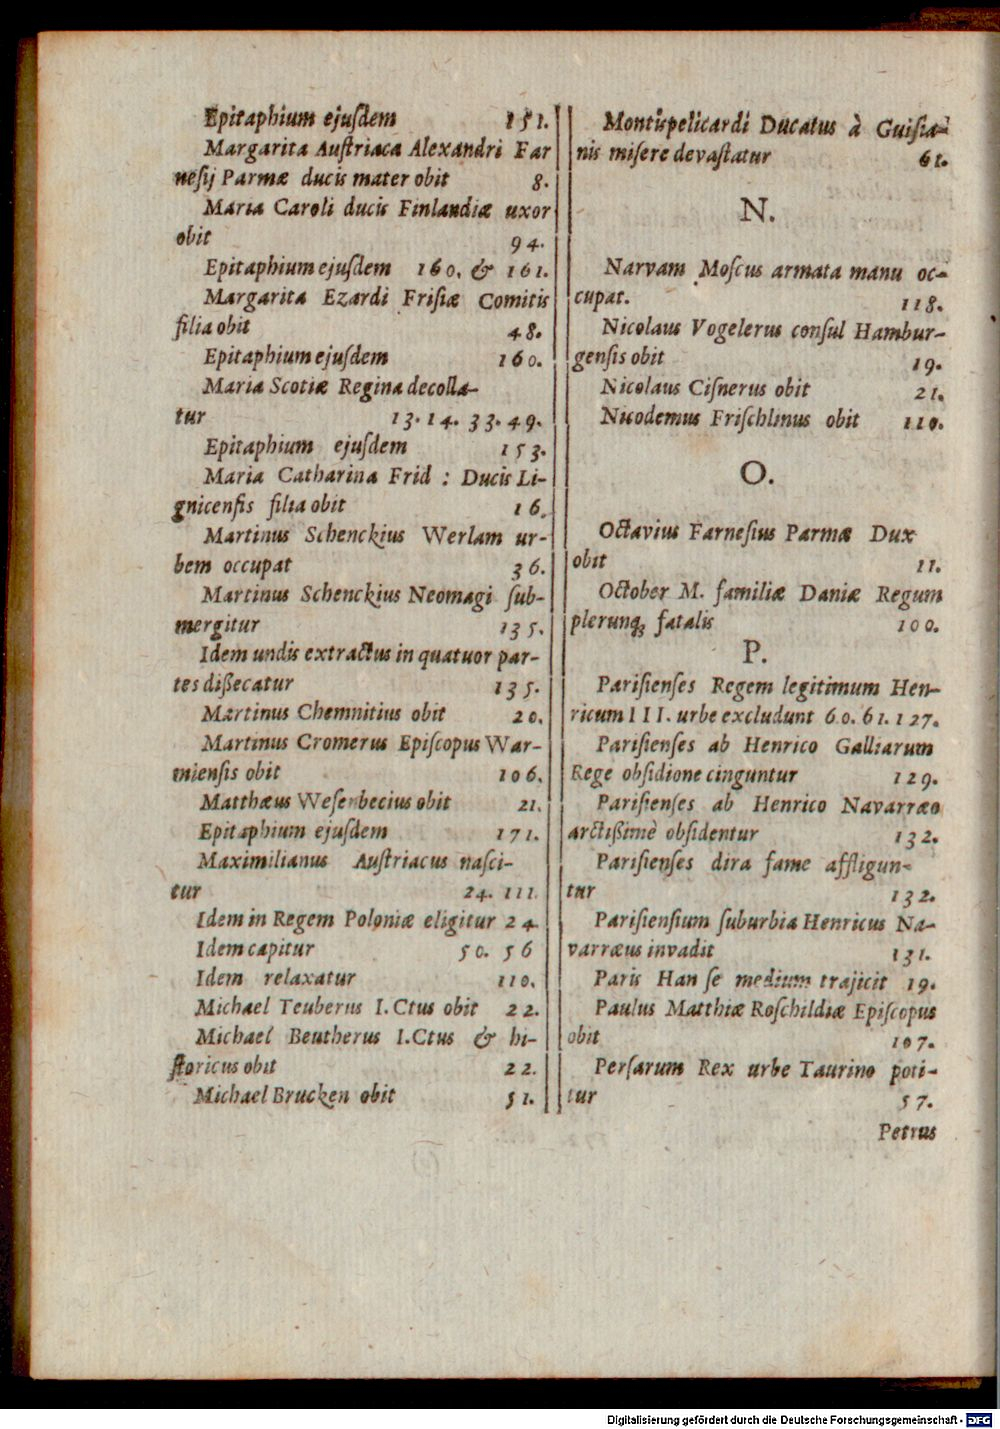 Epitaphium ejuſdem 151.
Margarita Auſtriaca Alexandri Far
neſij Parmæ ducis mater obit 8.
Maria Caroli ducis Finlandiæ uxor
obit 94.
Epitaphium ejuſdem 160. & 161.
Margarita Ezardi Friſiæ Comitis
filia obit 48.
Epitaphium ejuſdem 160.
Maria Scotiæ Regina decolla-
tur 13. 14. 33. 49.
Epitaphium ejuſdem 153.
Maria Catharina Frid : Ducis Li-
gnicenſis filia obit 16.
Martinus Schenckius Werlam ur-
bem occupat 36.
Martinus Schenckius Neomagi ſub-
mergitur 135.
Idem undis extractus in quatuor par-
tes dißecatur 135.
Martinus Chemnitius obit 20.
Martinus Cromerus Epiſcopus War-
mienſis obit 106.
Matthæus Weſenbecius obit 21.
Epitaphium ejuſdem 171.
Maximilianus Auſtriacus naſci-
tur 24. 111.
Idem in Regem Poloniæ eligitur 24.
Idem capitur 50. 56
Idem relaxatur 110.
Michael Teuberus I.Ctus obit 22.
Michael Beutherus I.Ctus & hi-
ſtoricus obit 22.
Michael Brucken obit 51.
Montüpelicardi Ducatus à Guiſia-
nis miſere devaſtatur 61.
N.
Narvam Moſcus armata manu oc-
cupat. 118.
Nicolaus Vogelerus conſul Hambur-
genſis obit 19.
Nicolaus Ciſnerus obit 21.
Nicodemus Friſchlinus obit 110.
O.
Octavius Farneſius Parmæ Dux
obit 11.
October M. familiæ Daniæ Regum
plerunq; fatalis 100.
P.
Pariſienſes Regem legitimum Hen-
ricum III. urbe excludunt 60. 61. 127.
Pariſienſes ab Henrico Galliarum
Rege obſidione cinguntur 129.
Pariſienſes ab Henrico Navarræo
arctißimè obſidentur 132.
Pariſienſes dira fame affligun-
tur 132.
Pariſienſium ſuburbia Henricus Na-
varræus invadit 131.
Paris Han ſe medium trajicit 19.
Paulus Matthiæ Roſchildiæ Epiſcopus
obit 107.
Perſarum Rex urbe Taurino poti-
tur 57.
Petrus
Digitalisierung gefördert durch die Deutsche Forschungsgemeinschaft - DFG